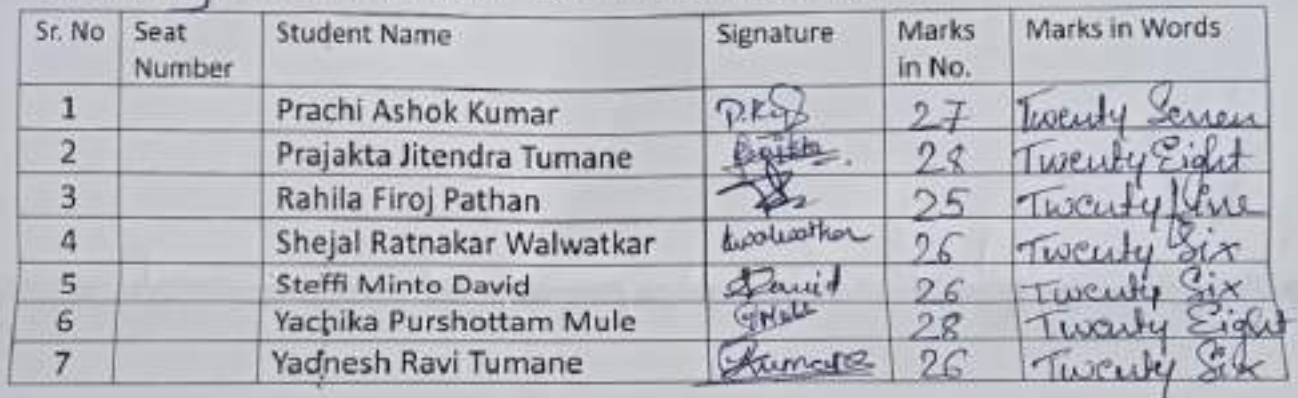 Sr. No Seat Number Student Name Signature Marks in No. Marks in Words
1 Prachi Ashok Kumar P.K 27 Twenty Seven
2 Prajakta Jitendra Tumane 28 Twenty Eight
3 Rahila Firoj Pathan 25 Twenty Five
4 Shejal Ratnakar Walwatkar 26 Twenty Six
5 Steffi Minto David David 26 Twenty Six
6 Yachika Purshottam Mule 28 Twenty Eight
7 Yadnesh Ravi Tumane 26 Twenty Six